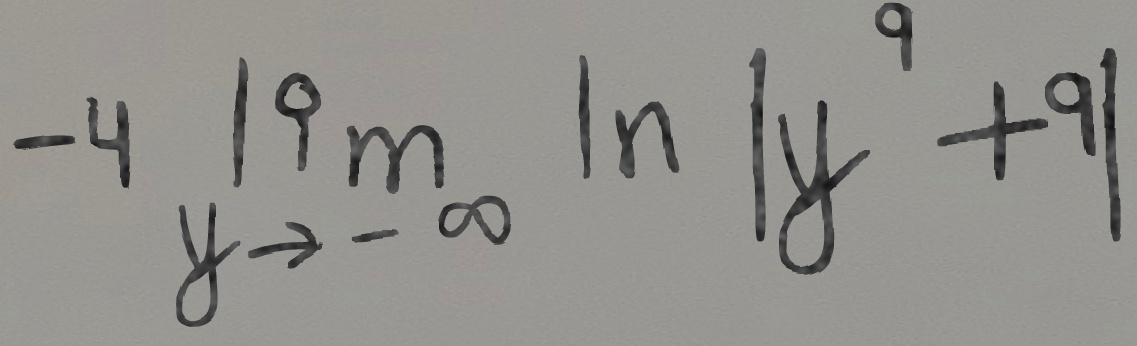 -4 lim ln |y^9 +9|
y→-∞